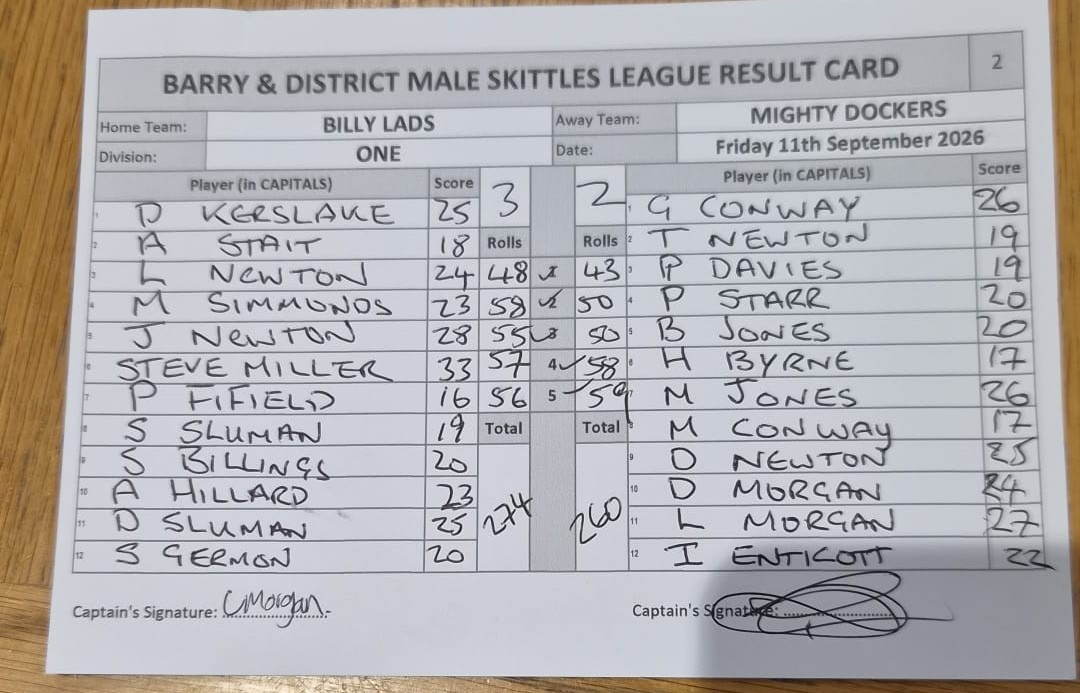 BARRY & DISTRICT MALE SKITTLES LEAGUE RESULT CARD 2
Home Team: BILLY LADS Away Team: MIGHTY DOCKERS
Division: ONE Date: Friday 11th September 2026
Player (in CAPITALS) Score 3 2 Player (in CAPITALS) Score
1 D KERSLAKE 25 1 G CONWAY 26
2 A STAIT 18 Rolls Rolls 2 T NEWTON 19
3 L NEWTON 24 48 1 43 3 P DAVIES 19
4 M SIMMONDS 23 58 2 50 4 P STARR 20
5 J NEWTON 28 55 3 50 5 B JONES 20
6 STEVE MILLER 33 57 4 58 6 H BYRNE 17
7 P FIFIELD 16 56 5 59 7 M JONES 26
8 S SLUMAN 19 Total Total 8 M CONWAY 17
9 S BILLINGS 20 9 D NEWTON 25
10 A HILLARD 23 274 260 10 D MORGAN 24
11 D SLUMAN 25 11 L MORGAN 27
12 S GERMON 20 12 I ENTICOTT 22
Captain's Signature: CMorgan. Captain's Signature: